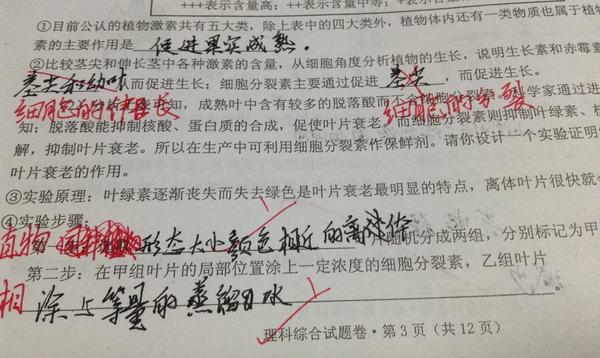 +++表示含量高；++表示含量中等；+表示含
①目前公认的植物激素共有五大类，除上表中的四大类外，植物体内还有一类物质也属于植
素的主要作用是 促进果实成熟.
②比较茎尖和伸长茎中各种激素的含量，从细胞角度分析植物的生长，说明生长素和赤霉素
茎尖和幼叶 而促进生长；细胞分裂素主要通过促进 茎尖，而促进生长。
细胞的伸长 知，成熟叶中含有较多的脱落酸而不含 细胞的分裂 学家通过进
知：脱落酸能抑制核酸、蛋白质的合成，促使叶片衰老，而细胞分裂素则抑制叶绿素、核
解，抑制叶片衰老。所以在生产中可利用细胞分裂素作保鲜剂。请你设计一个实验证明
叶片衰老的作用。
③实验原理：叶绿素逐渐丧失而失去绿色是叶片衰老最明显的特点，离体叶片很快就会
④实验步骤：
植物 形态大小颜色相近的离体 片随机分成两组，分别标记为甲
第二步：在甲组叶片的局部位置涂上一定浓度的细胞分裂素，乙组叶片
相 涂上等量的蒸馏水
理科综合试题卷·第3页（共12页）